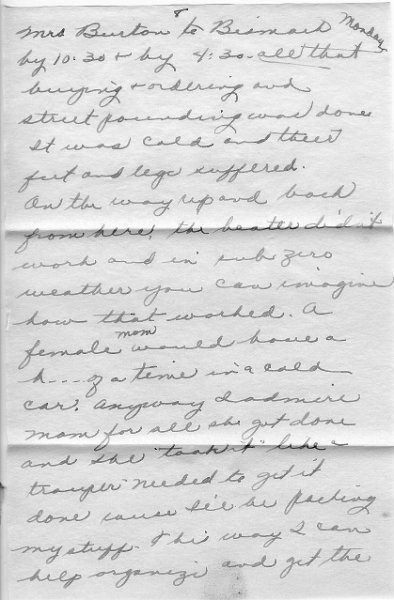 8
Mrs Burton to Bismark Monday
by 10:30 + by 4:30 - all that
buying + ordering and
street pounding was done
It was cold and their
feet and legs suffered.
On the way up and back
from here, the heater didn't
work and in sub zero
weather you can imagine
how that worked. A
female mom would have a
h---- of a time in a cold
car. Anyway I admire
Mom for all she got done
and she "took it" like a
trouper. Needed to get it
done cause I'll be packing
my stuff. This way I can
help organize and get the